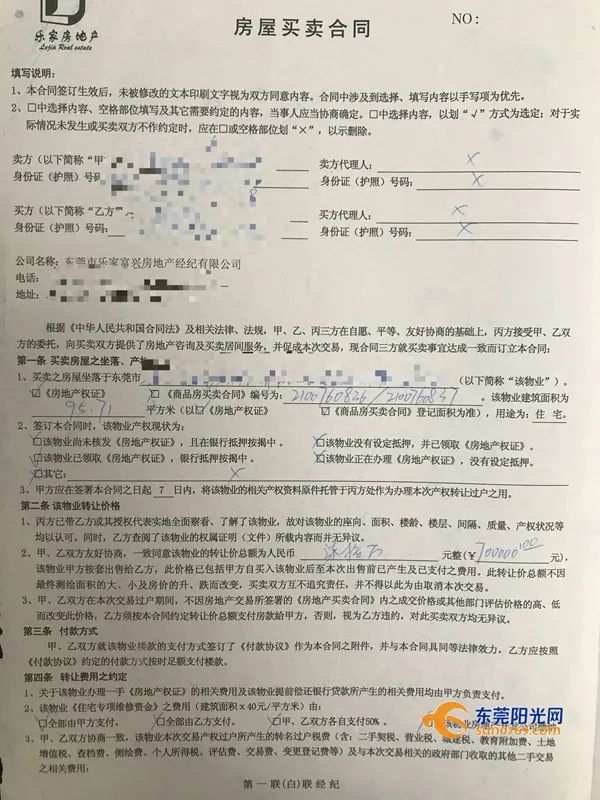 乐家房地产
Lejia Real estate
房屋买卖合同
NO:
填写说明:
1、本合同签订生效后,未被修改的文本印刷文字视为双方同意内容。合同中涉及到选择、填写内容以手写项为优先。
2、□中选择内容、空格部位填写及其它需要约定的内容,当事人应当协商确定。□中选择内容,以划“√”方式为选定;对于实
际情况未发生或买卖双方不作约定时,应在□或空格部位划“×”,以示删除。
卖方(以下简称“甲
卖方代理人: ×
身份证(护照)号码
身份证(护照)号码: ×
买方(以下简称“乙方”
买方代理人: ×
身份证(护照)号码:
身份证(护照)号码: ×
公司名称: 东莞市乐家富兴房地产经纪有限公司
电话:
地址:
根据《中华人民共和国合同法》及相关法律、法规,甲、乙、丙三方在自愿、平等、友好协商的基础上,丙方接受甲、乙双
方的委托,向买卖双方提供了房地产咨询及买卖居间服务,并促成本次交易,现合同三方就买卖事宜达成一致而订立本合同:
第一条 买卖房屋之坐落、产权
1、买卖之房屋坐落于东莞市 (以下简称“该物业”)。
□《房地产权证》 □《商品房买卖合同》编号为: 2100760826/2100760837 。该物业建筑面积为
95.71 平方米(以□《房地产权证》 □《商品房买卖合同》登记面积为准),用途为:住 宅。
2、签订本合同时,该物业产权现状为:
□该物业尚未核发《房地产权证》,且在银行抵押按揭中。 □该物业没有设定抵押,并已领取《房地产权证》。
□该物业已领取《房地产权证》,银行抵押按揭中。 □该物业正在办理《房地产权证》,没有设定抵押。
□其它: ×
3、甲方应在签署本合同之日起 7 日内,将该物业的相关产权资料原件托管于丙方处作为办理本次产权转让过户之用。
第二条 该物业转让价格
1、丙方已带乙方或其授权代表实地全面察看、了解了该物业,故对该物业的座向、面积、楼龄、楼层、间隔、质量、产权状况等
均以认可。同时,乙方查阅了该物业的权属证明(文件)所载内容而并无异议。
2、甲方、乙双方友好协商,一致同意该物业的转让价总额为人民币 柒拾万 元整(¥ 700000.00 元),
该物业甲方按套出售给乙方,此价格已包括甲方自买入该物业后至本次出售前已产生及已支付之费用。此转让价总额不因
最终测绘面积的大、小及房价的升、跌而改变,买卖双方互不追究责任,并不得以此为由取消本次交易。
3、甲方、乙双方在本次交易过户期间,不因房地产交易所签署的《房地产买卖合同》内之成交价格或其他部门评估价格的高、低
而改变此价格,乙方须按本合同约定转让价总额支付房款给甲方,否则,视为乙方违约,对此买卖双方均无异议。
第三条 付款方式
甲方、乙双方就该物业楼款的支付方式签订了《付款协议》作为本合同之附件,并与本合同具同等法律效力。乙方应按照
《付款协议》约定的付款方式按时足额支付楼款。
第四条 转让费用之约定
1、关于该物业办理一手《房地产权证》的相关费用及该物业提前偿还银行贷款所产生的相关费用均由甲方负责支付。
2、该物业《住宅专项维修资金》之费用(建筑面积x40元/平方米)由:
□全部由甲方支付。 □全部由乙方支付。 □甲、乙双方各自支付50%。
3、甲方、乙双方协商一致,该物业本次交易产权过户所产生的转名过户税费(含:二手契税、营业税、城建税、教育附加费、土地
增值税、查档费、侧绘费、个人所得税、评估费、交易费、变更登记费等)及与本次交易相关的政府部门收取的其他二手交易
之相关费用:
第一联(白)联经纪
东莞阳光网
sun0769.com